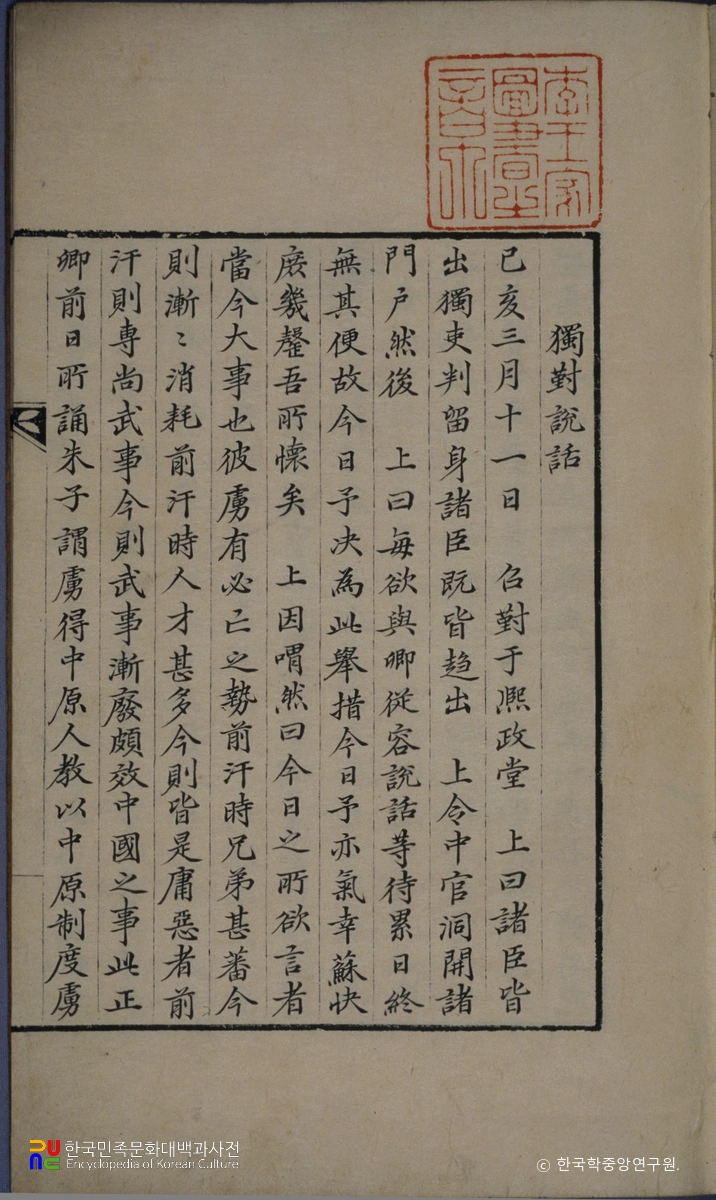 李王家
圖書室
之印
獨對說話
己亥三月十一日 召對于熙政堂 上曰諸臣皆
出獨吏判留身諸臣旣皆趍出 上令中官洞開諸
門戶然後 上曰每欲與卿從容說話等待累日終
無其便故今日予决為此舉措今日予亦氣幸蘇快
庶幾罄吾所懷矣 上因喟然曰今日之所欲言者
當今大事也彼虜有必亡之勢前汗時兄弟甚蕃今
則漸〻消耗前汗時人才甚多今則皆是庸惡者前
汗則專尚武事今則武事漸廢頗效中國之事此正
卿前日所誦朱子謂虜得中原人教以中原制度虜
한국민족문화대백과사전
Encyclopedia of Korean Culture
© 한국학중앙연구원.